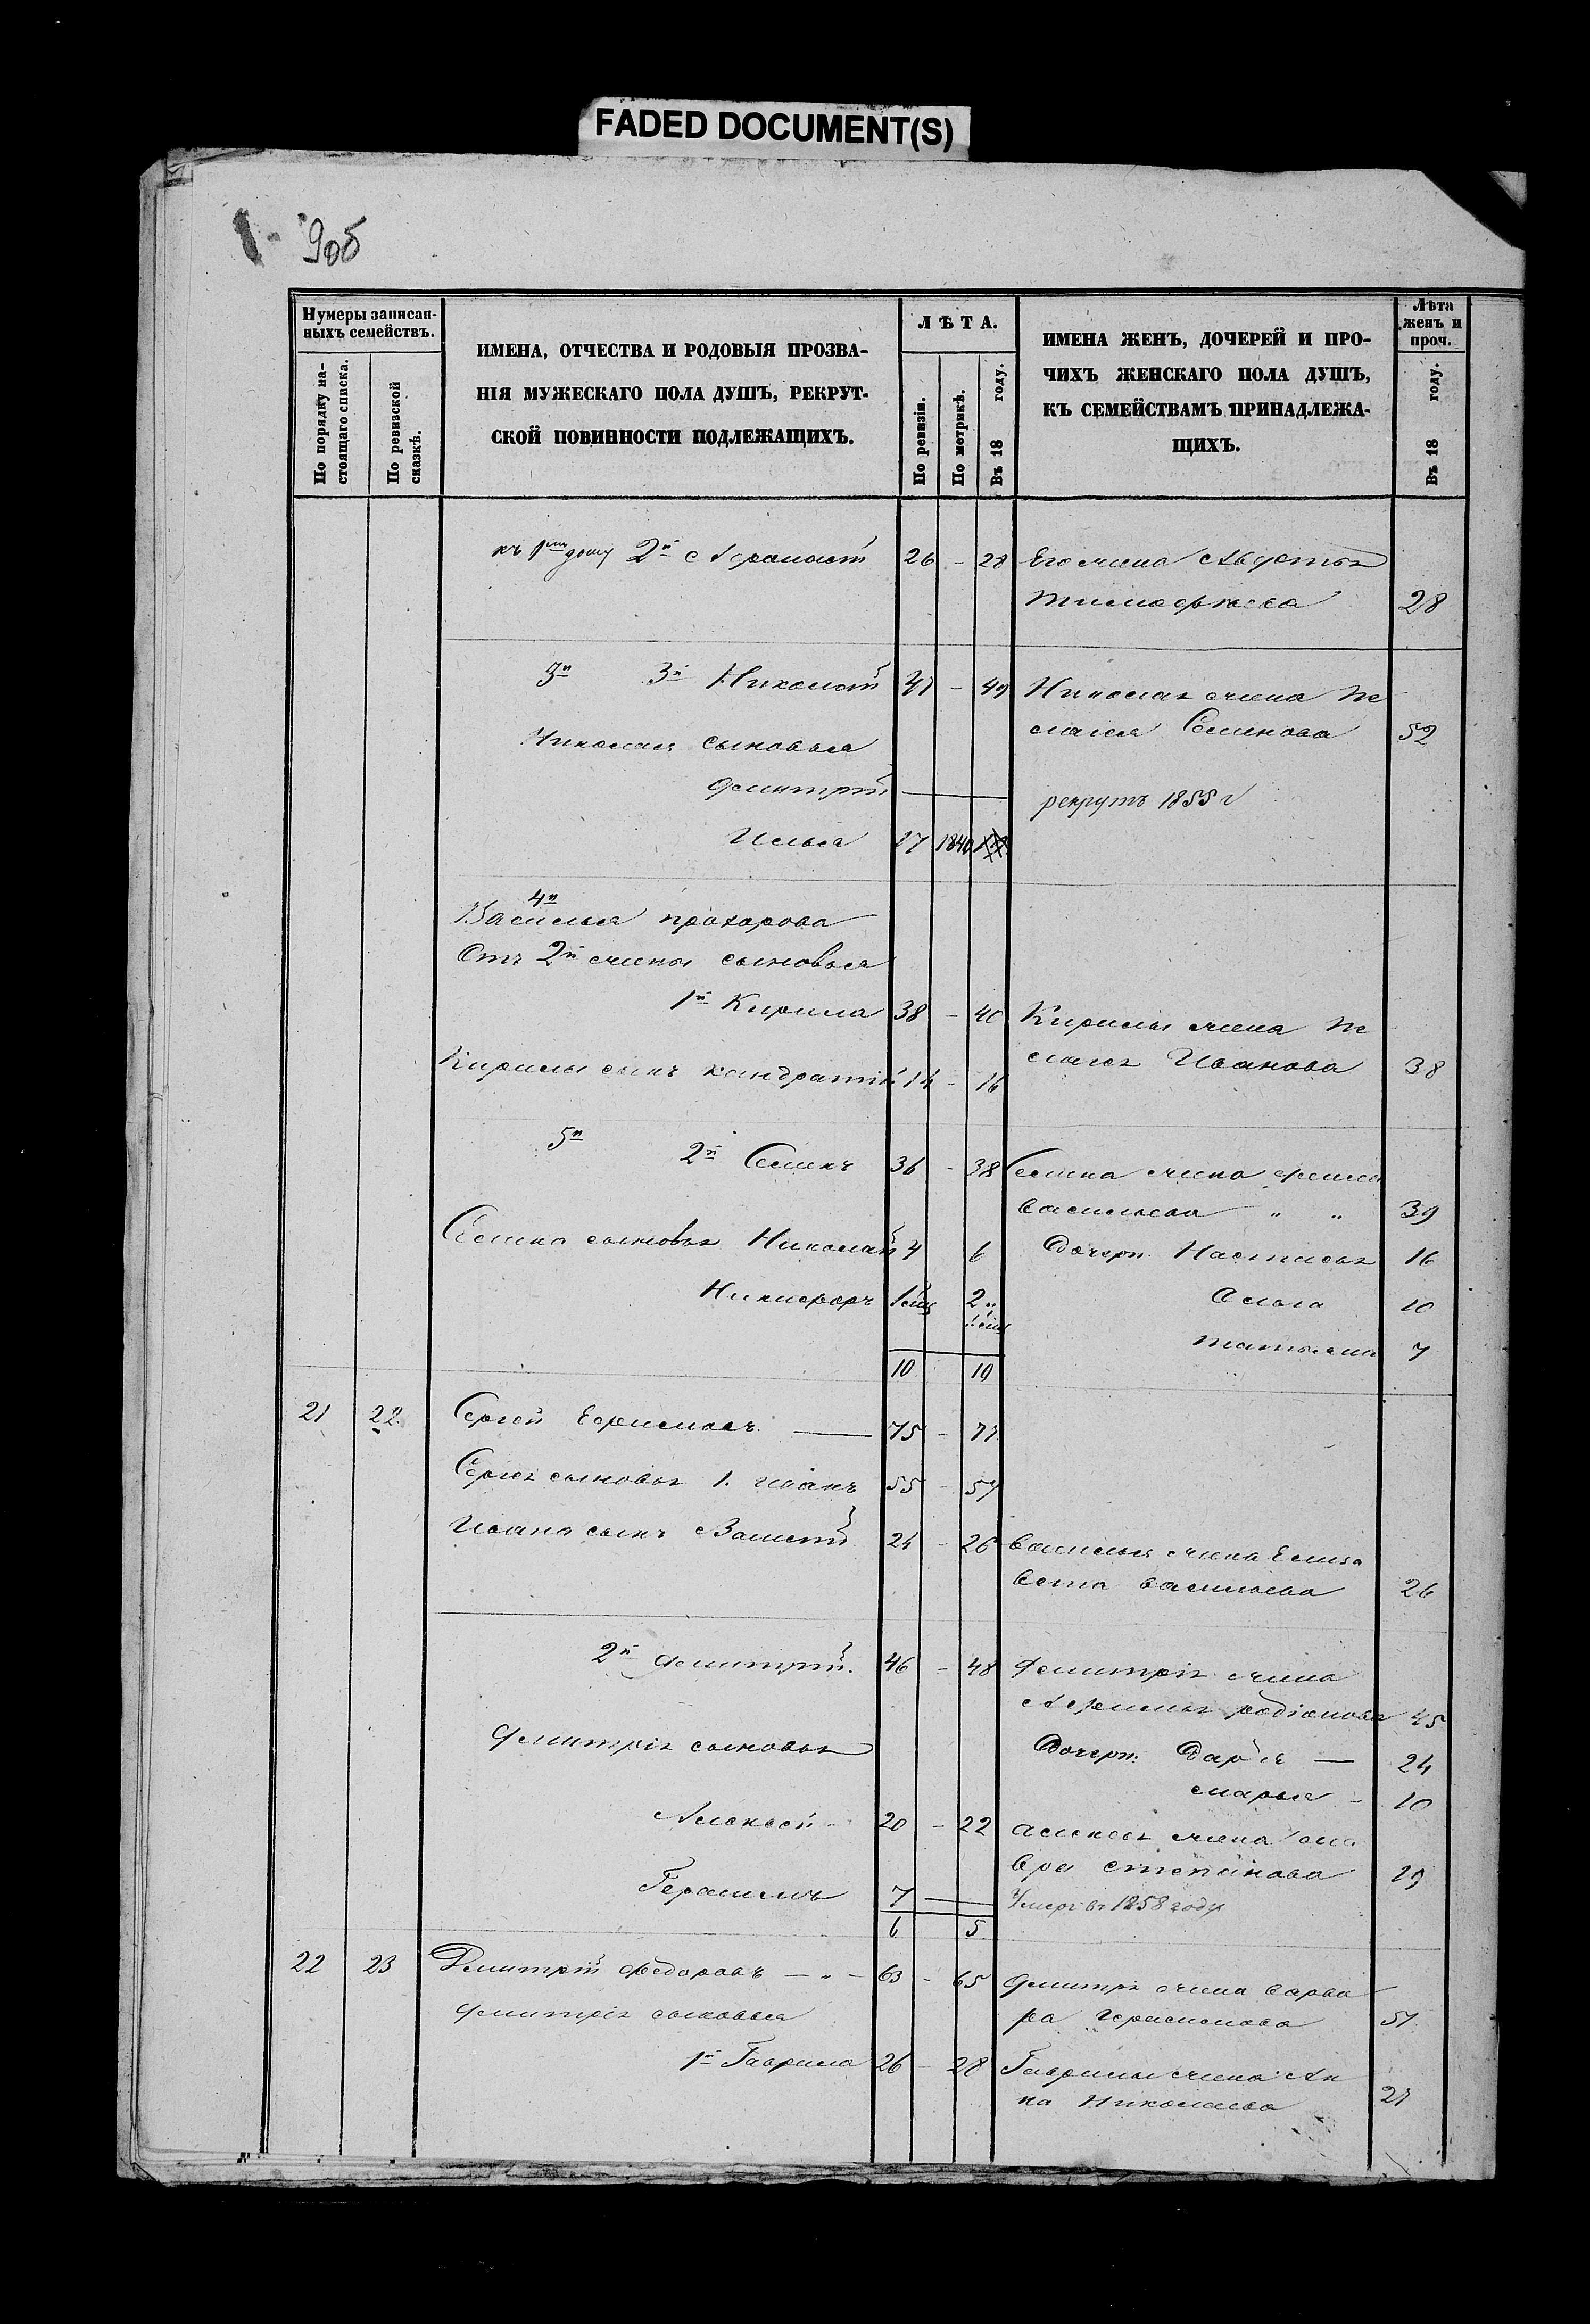 FADED DOCUMENT(S)
9об
Нумеры записан-
ныхъ семействъ.
По порядку на-
стоящаго списка.
По ревизской
сказкѣ.
ИМЕНА, ОТЧЕСТВА И РОДОВЫЯ ПРОЗВА-
НІЯ МУЖЕСКАГО ПОЛА ДУШЪ, РЕКРУТ-
СКОЙ ПОВИННОСТИ ПОДЛЕЖАЩИХЪ.
ЛѢТА.
По ревизіи.
По метрикѣ.
Въ 18 году.
ИМЕНА ЖЕНЪ, ДОЧЕРЕЙ И ПРО-
ЧИХЪ ЖЕНСКАГО ПОЛА ДУШЪ,
КЪ СЕМЕЙСТВАМЪ ПРИНАДЛЕЖА-
ЩИХЪ.
Лѣта
женъ и
проч.
Въ 18 году.
2й 26 - 28 Его жена Авдотья
28
3й 3й Николай 47 - 49 Николая жена Пе
лагея Семенова 52
Николая сыновья
Дмитрій — рекрутъ 1855 г
Илья 17 1840
4й
Василья прохорова
Отъ 2й жены сыновья
1й Кирила 38 - 40 Кирилы жена Пе
лагея Иванова 38
Кирилы сынъ кондратій 14 - 16
5й 2й Семенъ 36 - 38 Семена жена
васильева " " 39
Семена сыновья Николай 4 6 Дочери Настасья 16
Никифоръ 2 10
татьяна 7
10 10
21 22 Сергей Ефимовъ — 75 - 77
Сергея сыновья 1. иванъ 55 - 57
Ивана сынъ Василій 24 - 26 Василья жена Елиза
вета васильева 26
2й Дмитрій. 46 - 48 Дмитрія жена
родіонова 45
Дмитрія сыновья Дочери: Дарья — 24
марья - 10
Алексей - 20 - 22 алексея жена
степанова 19
Герасимъ 7 — Умеръ въ 1858 году
6 5
22 23 Дмитрій Федоровъ — " — 63 - 65 Дмитрія жена варва
ра Герасимова 57
Дмитрія сыновья
1й Гаврила 26 - 28 Гаврилы жена Ан
на Николаева 27